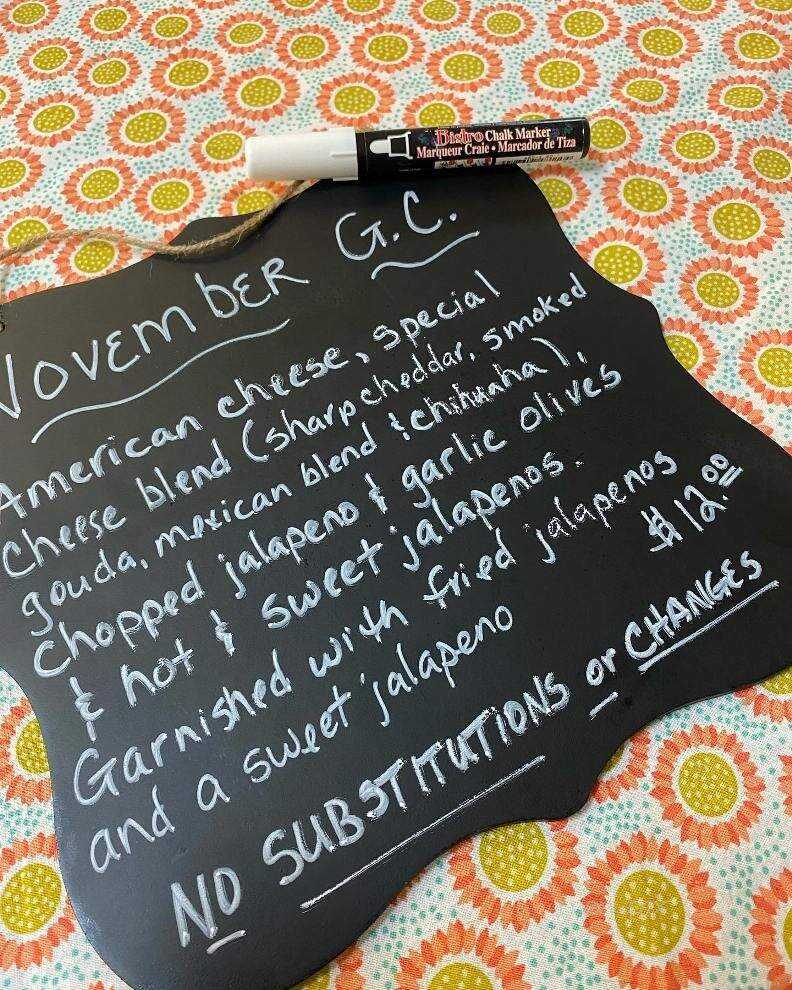 Bistro Chalk Marker
Marqueur Craie • Marcador de Tiza
NOVEMBER G.C.
American cheese, special
Cheese blend (sharp cheddar, smoked
gouda, mexican blend & chihuaha),
Chopped jalapeno & garlic olives
& hot & sweet jalapenos.
Garnished with fried jalapenos
and a sweet jalapeno
$12.00
NO SUBSTITUTIONS or CHANGES